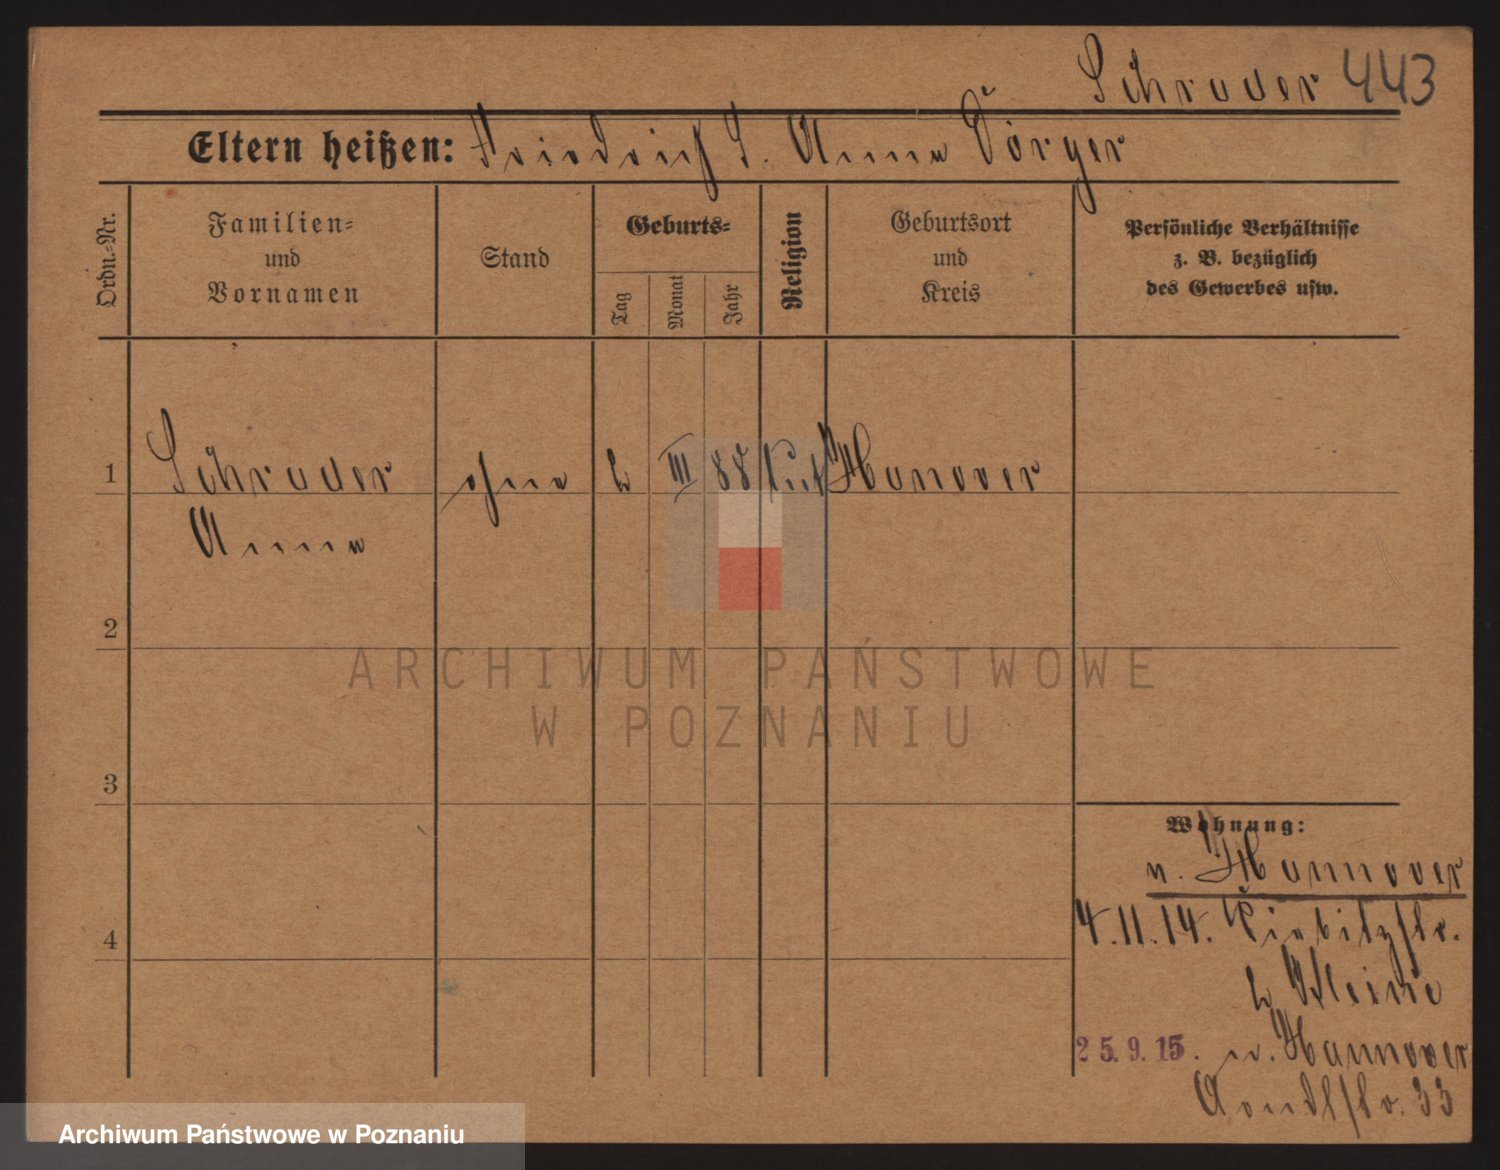 Schrader 443
Eltern heißen: Friedrich S. Anna Dörger
Ordn.=Nr.
Familien=
und
Vornamen
Stand
Geburts=
Tag
Monat
Jahr
Religion
Geburtsort
und
Kreis
Persönliche Verhältnisse
z. B. bezüglich
des Gewerbes usw.
1
Schrader ohne 2 III 88 Hanover
Anna
2
ARCHIWUM PAŃSTWOWE
W POZNANIU
3
Wohnung:
n. Hannover
4
4.11.14. Kiebitzstr.
25.9.15. n. Hannover
33
Archiwum Państwowe w Poznaniu